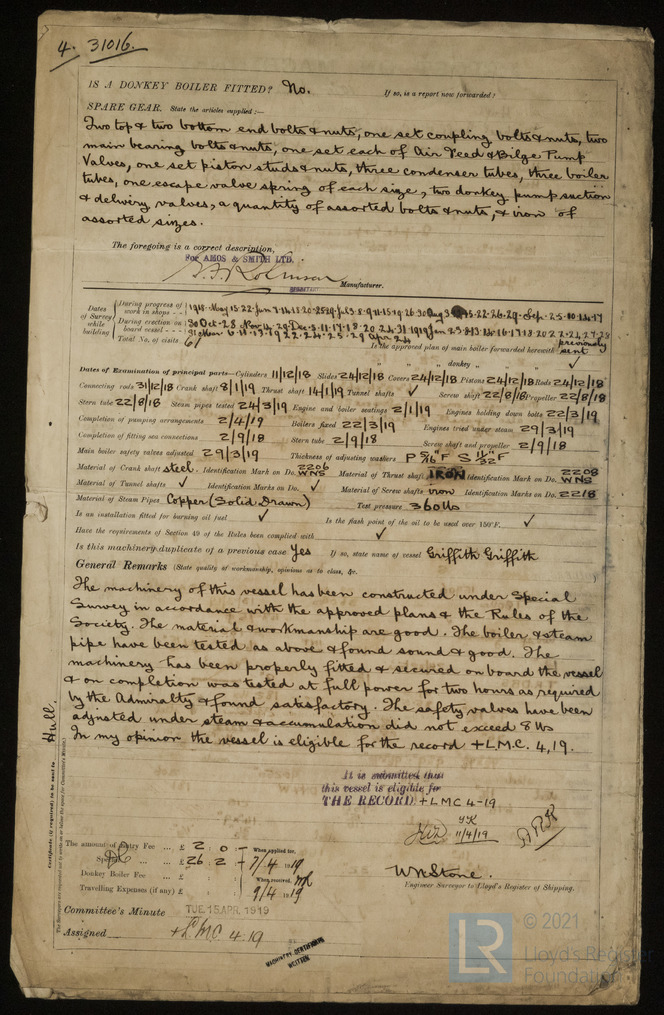 4. 31016.
IS A DONKEY BOILER FITTED? No. If so, is a report now forwarded?
SPARE GEAR. State the articles supplied:—
Two top & two bottom end bolts & nuts, one set coupling bolts & nuts, two
main bearing bolts & nuts, one set each of Air Feed & Bilge Pump
Valves, one set piston studs & nuts, three condenser tubes, three boiler
tubes, one escape valve spring of each size, two donkey pump suction
& delivery valves, a quantity of assorted bolts & nuts, & iron of
assorted sizes.
The foregoing is a correct description,
For AMOS & SMITH LTD.
Manufacturer.
Dates of Survey while building
During progress of work in shops - - 1918. May 15. 22. Jun 7. 14. 18. 20. 25. 29. Jul 3. 8. 9. 11. 15. 19. 26. 30. Aug 15. 22. 26. 29. Sep. 2. 5. 10. 14. 17
During erection on board vessel - - 30 Oct. 28 Nov. 14. 29. Dec. 5. 11. 17. 18. 20. 24. 31 1919 Jan
Mar 6. 11. 13. 19. 22. 24. 25. 29 Apr 2.4
Total No. of visits 61 Is the approved plan of main boiler forwarded herewith previously sent
" " " donkey " " "
Dates of Examination of principal parts—Cylinders 11/12/18 Slides 24/12/18 Covers 24/12/18 Pistons 24/12/18 Rods 24/12/18
Connecting rods 31/12/18 Crank shaft 8/1/19 Thrust shaft 14/1/19 Tunnel shafts ✓ Screw shaft 22/8/18 Propeller 22/8/18
Stern tube 22/8/18 Steam pipes tested 24/3/19 Engine and boiler seatings 2/1/19 Engines holding down bolts 22/3/19
Completion of pumping arrangements 2/4/19 Boilers fixed 22/3/19 Engines tried under steam 29/3/19
Completion of fitting sea connections 2/9/18 Stern tube 2/9/18 Screw shaft and propeller 2/9/18
Main boiler safety valves adjusted 29/3/19 Thickness of adjusting washers P 5/16" F S 11/32" F
Material of Crank shaft steel. Identification Mark on Do. 2206 WNS Material of Thrust shaft IRON Identification Mark on Do. 2208 WNS
Material of Tunnel shafts ✓ Identification Marks on Do. ✓ Material of Screw shafts iron Identification Marks on Do. 2218
Material of Steam Pipes Copper (Solid Drawn) Test pressure 360 lbs
Is an installation fitted for burning oil fuel ✓ Is the flash point of the oil to be used over 150°F. ✓
Have the requirements of Section 49 of the Rules been complied with ✓
Is this machinery duplicate of a previous case Yes If so, state name of vessel Griffith Griffith
General Remarks (State quality of workmanship, opinions as to class, &c.
The machinery of this vessel has been constructed under Special
Survey in accordance with the approved plans & the Rules of the
Society. The material & workmanship are good. The boiler & steam
pipe have been tested as above & found sound & good. The
machinery has been properly fitted & secured on board the vessel
& on completion was tested at full power for two hours as required
by the Admiralty & found satisfactory. The safety valves have been
adjusted under steam & accumulation did not exceed 8 lbs
In my opinion the vessel is eligible for the record + L.M.C. 4,19.
It is submitted that
this vessel is eligible for
THE RECORD. + LMC 4-19
11/4/19
Certificate (if required) to be sent to Hull.
The amount of Entry Fee ... £ 2 : 0 : When applied for,
Special ... £ 26 : 2 : 7/4/1919
Donkey Boiler Fee ... £ When received,
Travelling Expenses (if any) £ 9/4/1919
W N Stone.
Engineer Surveyor to Lloyd's Register of Shipping.
Committee's Minute TUE. 15 APR. 1919
Assigned + L M C 4.19
MACHINERY CERTIFICATE
WRITTEN
LR © 2021
Lloyd's Register
Foundation